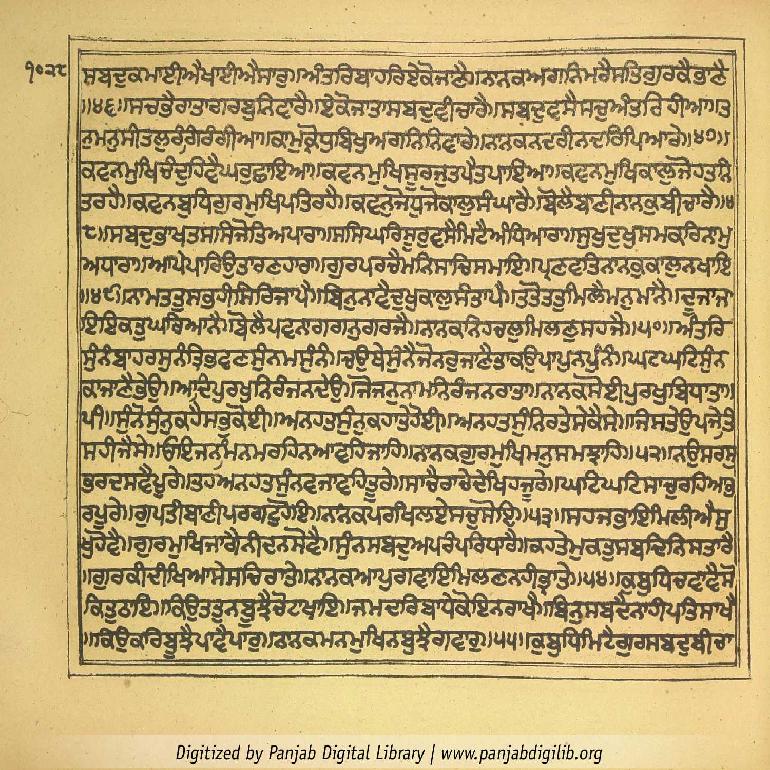 ੧੦੨੮
ਸਬਦੁਕਮਾਈਐਖਾਈਐਸਾਰੁ॥ਅੰਤਰਿਬਾਹਰਿਏਕੋਜਾਣੈ॥ਨਾਨਕਅਗਨਿਮਰੈਸਤਿਗੁਰਕੈਭਾਣੈ
॥੪੬॥ਸਚਭੈਰਾਤਾਗਰਬੁਨਿਵਾਰੈ॥ਏਕੋਜਾਤਾਸਬਦੁਵੀਚਾਰੈ॥ਸਬਦੁਵਸੈਸਚੁਅੰਤਰਿਹੀਆ॥ਤ
ਨੁਮਨੁਸੀਤਲੁਰੰਗਿਰੰਗੀਆ॥ਕਾਮੁਕ੍ਰੋਧੁਬਿਖੁਅਗਨਿਨਿਵਾਰੇ॥ਨਾਨਕਨਦਰੀਨਦਰਿਪਿਆਰੇ॥੪੭॥
ਕਵਨਮੁਖਿਚੰਦੁਹਿਵੈਘਰੁਛਾਇਆ॥ਕਵਨਮੁਖਿਸੂਰਜੁਤਪੈਤਪਾਇਆ॥ਕਵਨਮੁਖਿਕਾਲੁਜੋਹਤਨਿ
ਤਰਹੈ॥ਕਵਨਬੁਧਿਗੁਰਮੁਖਿਪਤਿਰਹੈ॥ਕਵਨੁਜੋਧੁਜੋਕਾਲੁਸੰਘਾਰੈ॥ਬੋਲੈਬਾਣੀਨਾਨਕੁਬੀਚਾਰੈ॥੪
੮॥ਸਬਦੁਭਾਖਤਸਸਿਜੋਤਿਅਪਾਰਾ॥ਸਸਿਘਰਿਸੂਰੁਵਸੈਮਿਟੈਅੰਧਿਆਰਾ॥ਸੁਖੁਦੁਖੁਸਮਕਰਿਨਾਮੁ
ਅਧਾਰਾ॥ਆਪੇਪਾਰਿਉਤਾਰਣਹਾਰਾ॥ਗੁਰਪਰਚੈਮਨਿਸਾਚਿਸਮਾਇ॥ਪ੍ਰਣਵਤਿਨਾਨਕੁਕਾਲੁਨਖਾਇ
॥੪੯॥ਨਾਮਤਤੁਸਭਹੀਸਿਰਿਜਾਪੈ॥ਬਿਨੁਨਾਵੈਦੁਖੁਕਾਲੁਸੰਤਾਪੈ॥ਤਤੋਤਤੁਮਿਲੈਮਨੁਮਾਨੈ॥ਦੂਜਾਜਾ
ਇਇਕਤੁਘਰਿਆਨੈ॥ਬੋਲੈਪਵਨਾਗਗਨੁਗਰਜੈ॥ਨਾਨਕਨਿਹਚਲੁਮਿਲਣੁਸਹਜੈ॥੫੦॥ਅੰਤਰਿ
ਸੁੰਨੰਬਾਹਰਿਸੁੰਨੰਤ੍ਰਿਭਵਣਸੁੰਨਮਸੁੰਨੰ॥ਚਉਥੇਸੁੰਨੈਜੋਨਰੁਜਾਣੈਤਾਕਉਪਾਪੁਨਪੁੰਨੰ॥ਘਟਿਘਟਿਸੁੰਨ
ਕਾਜਾਣੈਭੇਉ॥ਆਦਿਪੁਰਖੁਨਿਰੰਜਨਦੇਉ॥ਜੋਜਨੁਨਾਮਨਿਰੰਜਨਰਾਤਾ॥ਨਾਨਕਸੋਈਪੁਰਖੁਬਿਧਾਤਾ॥
ਪ੧॥ਸੁੰਨੋਸੁੰਨੁਕਹੈਸਭੁਕੋਈ॥ਅਨਹਤਸੁੰਨੁਕਹਾਤੇਹੋਈ॥ਅਨਹਤਸੁੰਨਿਰਤੇਸੇਕੈਸੇ॥ਜਿਸਤੇਉਪਜੇਤਿ
ਸਹੀਜੈਸੇ॥ਓਇਜਨਮਿਨਮਰਹਿਨਆਵਹਿਜਾਹਿ॥ਨਾਨਕਗੁਰਮੁਖਿਮਨੁਸਮਝਾਹਿ॥੫੨॥ਨਉਸਰਸੁ
ਭਰਦਸਵੈਪੂਰੇ॥ਤਹਅਨਹਤਸੁੰਨਵਜਾਵਹਿਤੂਰੇ॥ਸਾਚੈਰਾਚੇਦੇਖਿਹਜੂਰੇ॥ਘਟਿਘਟਿਸਾਚੁਰਹਿਆਭ
ਰਪੂਰੇ॥ਗੁਪਤੀਬਾਣੀਪਰਗਟੁਹੋਇ॥ਨਾਨਕਪਰਖਿਲਏਸਚੁਸੋਇ॥੫੩॥ਸਹਜਭਾਇਮਿਲੀਐਸੁ
ਖੁਹੋਵੈ॥ਗੁਰਮੁਖਿਜਾਗੈਨੀਦਨਸੋਵੈ॥ਸੁੰਨਸਬਦੁਅਪਰੰਪਰਿਧਾਰੈ॥ਕਹਤੇਮੁਕਤੁਸਬਦਿਨਿਸਤਾਰੈ
॥ਗੁਰਕੀਦੀਖਿਆਸੇਸਚਿਰਾਤੇ॥ਨਾਨਕਆਪੁਗਵਾਇਮਿਲਣਨਹੀਭ੍ਰਾਤੇ॥੫੪॥ਕੁਬੁਧਿਚਵਾਵੈਸੋ
ਕਿਤੁਠਾਇ॥ਕਿਉਤਤੁਨਬੂਝੈਚੋਟਾਖਾਇ॥ਜਮਦਰਿਬਾਧੇਕੋਇਨਰਾਖੈ॥ਬਿਨੁਸਬਦੈਨਾਹੀਪਤਿਸਾਖੈ
॥ਕਿਉਕਰਿਬੂਝੈਪਾਵੈਪਾਰੁ॥ਨਾਨਕਮਨਮੁਖਿਨਬੁਝੈਗਵਾਰੁ॥੫੫॥ਕੁਬੁਧਿਮਿਟੈਗੁਰਸਬਦੁਬੀਚਾ
Digitized by Panjab Digital Library | www.panjabdigilib.org